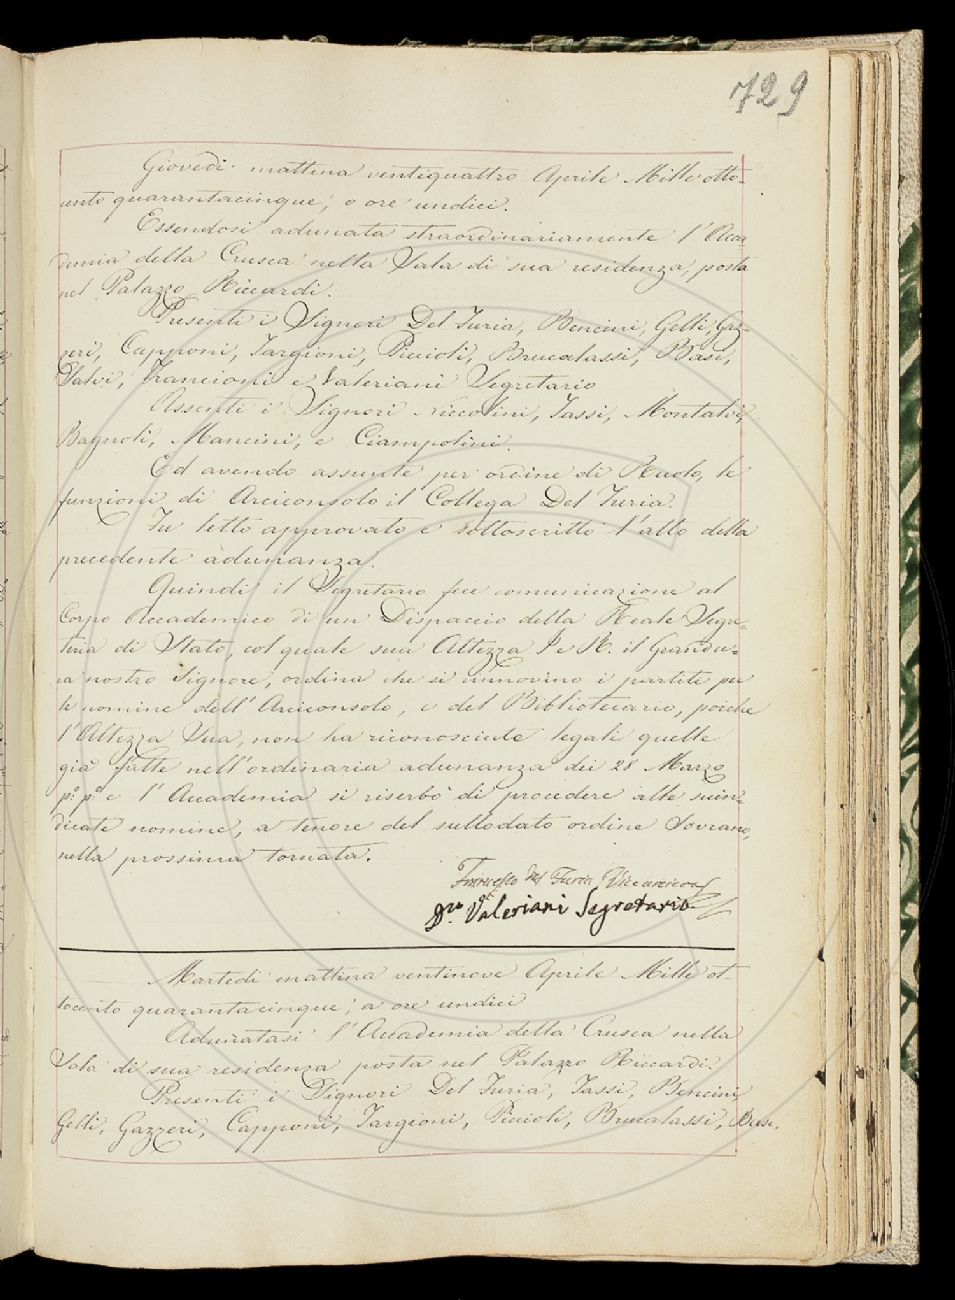 729
Giovedì mattina ventiquattro Aprile Mille otto-
cento quarantacinque, a ore undici.
Essendosi adunata straordinariamente l'Acca
demia della Crusca nella Sala di sua residenza, posta
nel Palazzo Riccardi.
Presenti i Signori Del Furia, Bencini, Gelli, Gaz-
zeri, Capponi, Targioni, Piccioli, Brucalassi, Basi,
Salvi, Francioni e Valeriani Segretario
Assenti i Signori Niccolini, Tassi, Montalvi,
Bagnoli, Mancini, e Ciampolini.
Ed avendo assunte per ordine di Ruolo, le
funzioni di Arciconsolo il Collega Del Furia.
Fu letto approvato e sottoscritto l'atto della
precedente adunanza.
Quindi il Segretario fece comunicazione al
Corpo Accademico di un Dispaccio della Reale Segre-
teria di Stato, col quale sua Altezza I e R. il Grandu-
ca nostro Signore, ordina che si rinnovino i partiti per
le nomine dell'Arciconsolo, e del Bibliotecario, poichè
l'Altezza Sua, non ha riconosciute legali quelle
già fatte nell'ordinaria adunanza dei 28 Marzo
p.o p.o e l'Accademia si riserbò di procedere alle suin-
dicate nomine, a tenore del sullodato ordine Sovrano,
nella prossima tornata.
Francesco del Furia Vicearcicon
Valeriani Segretario
Martedì mattina ventinove Aprile Mille ot-
tocento quarantacinque; a ore undici
Adunatasi l'Accademia della Crusca nella
Sala di sua residenza posta nel Palazzo Riccardi.
Presenti i Signori Del Furia, Tassi, Bencini,
Gelli, Gazzeri, Capponi, Targioni, Piccioli, Brucalassi, Basi,